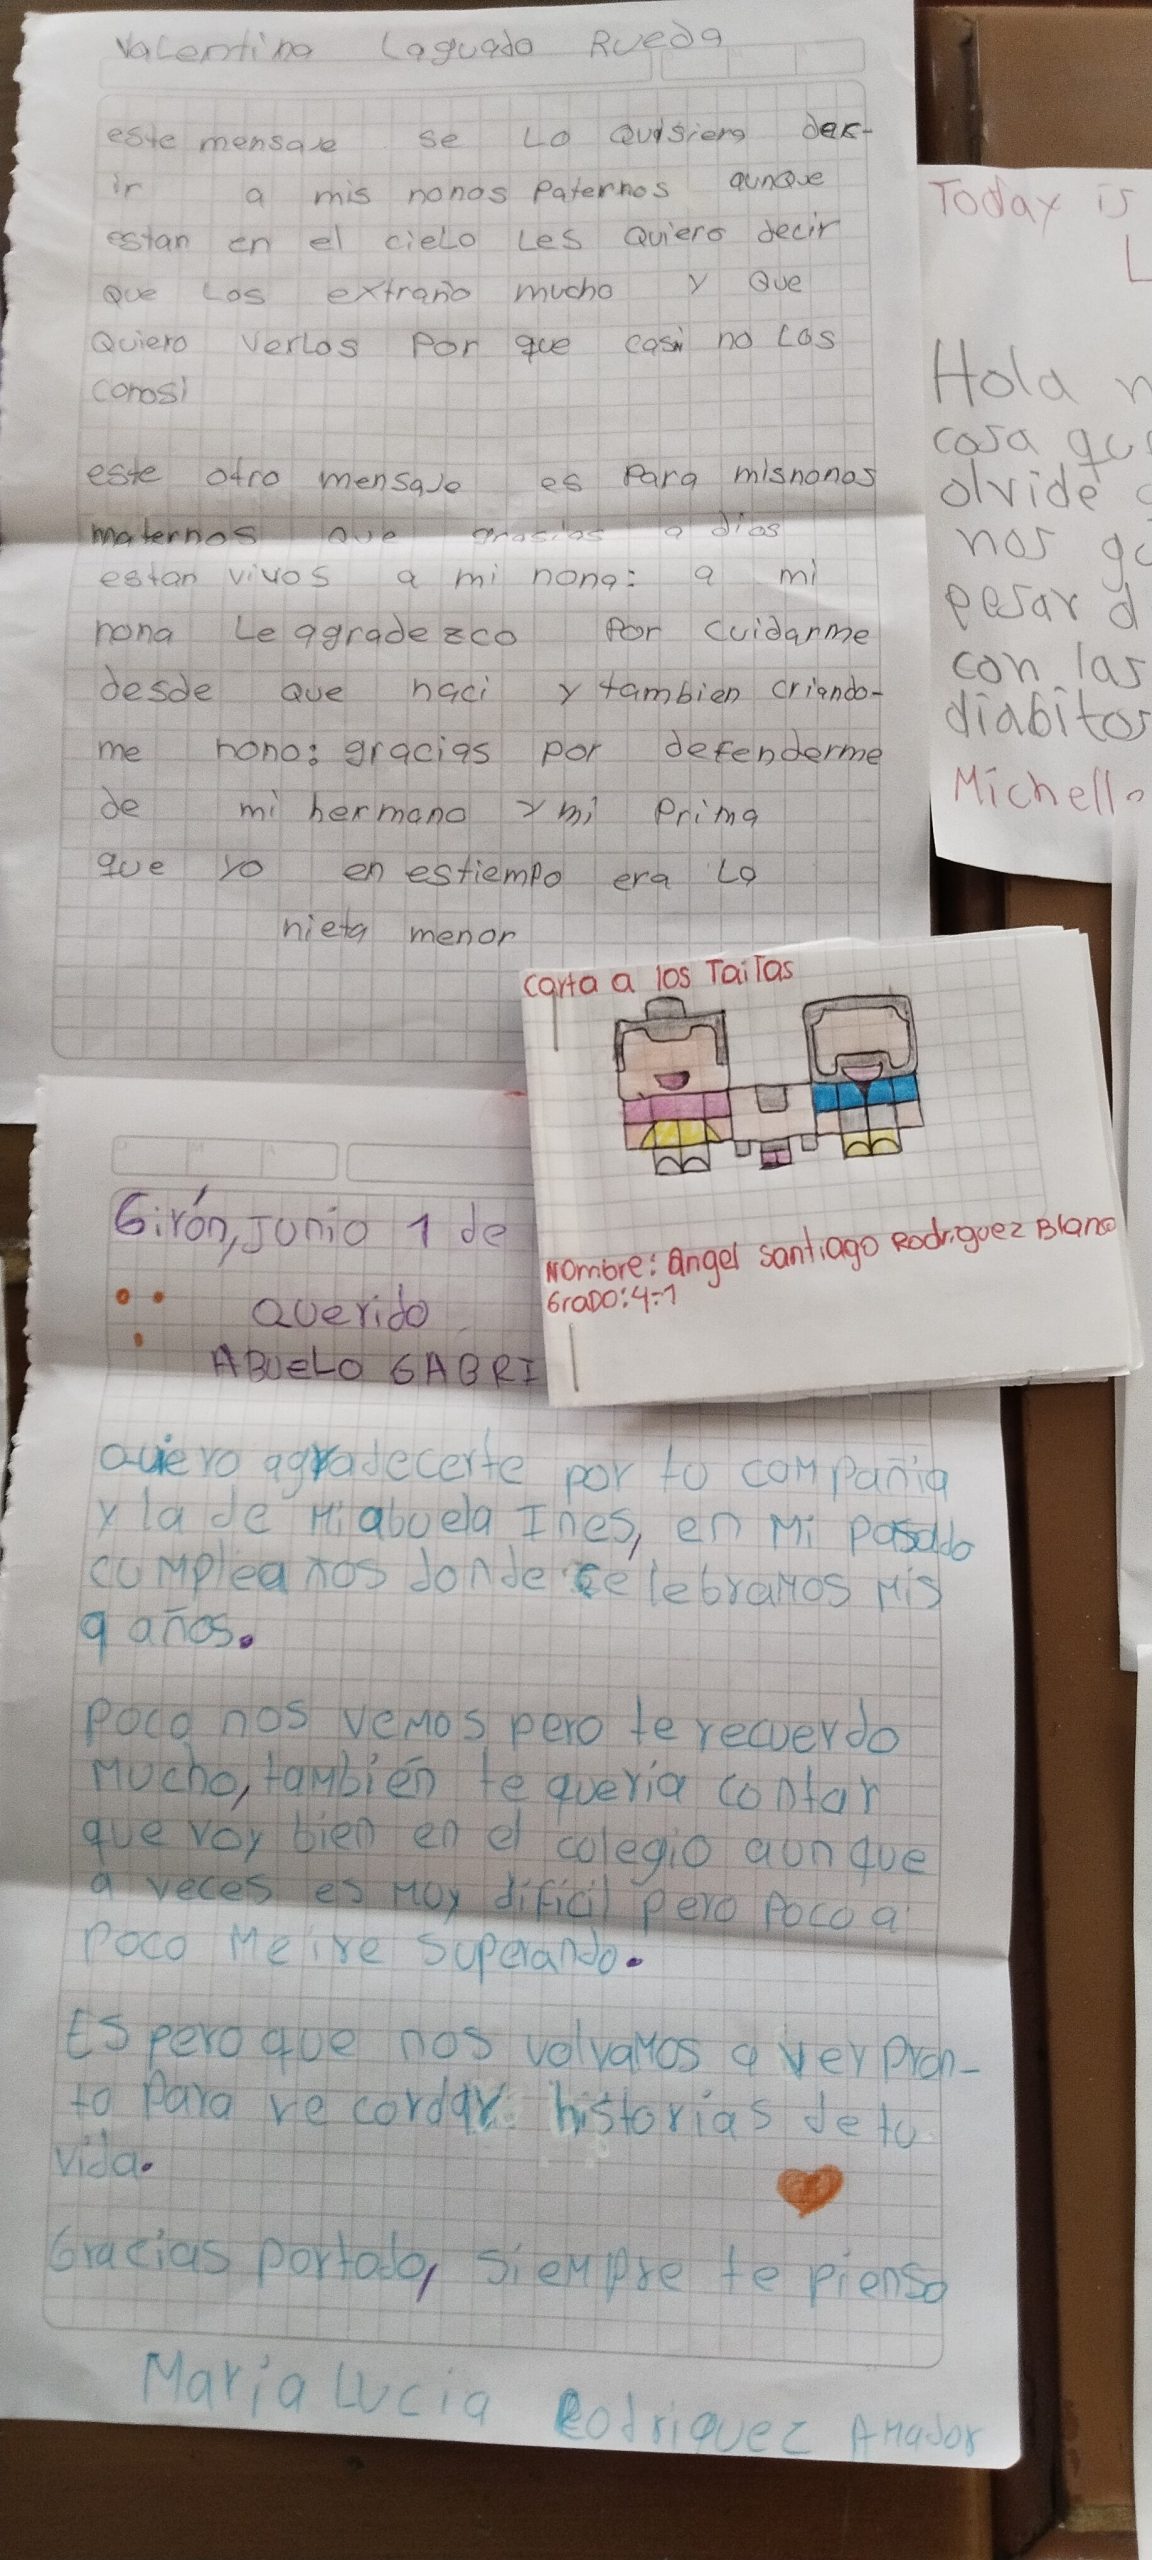 Valentina Laguado Rueda
este mensaje se Lo Quisiera des-
ir a mis nonos Paternos aunque
estan en el cielo Les Quiero decir
Que Los extraño mucho y Que
Quiero verlos Por que casi no Los
conosi
este otro mensaje es Para misnonos
maternos Que grasias a dios
estan vivos a mi nona: a mi
nona Le agradezco Por cuidarme
desde Que naci y tambien criando-
me nono: gracias por defenderme
de mi hermano y mi Prima
que yo en estiempo era La
nieta menor
Today is
L
Hola
cosa
olvide
nos
pesar d
con las
diabitos
Michelle
carta a los TaiTas
Nombre: Angel Santiago Rodriguez Blanco
Grado: 4-1
Girón, Junio 1 de
Querido
ABUELO GABRI
Quiero agradecerte por tu compañia
y la de Mi abuela Ines, en Mi pasado
cumpleaños donde celebramos Mis
9 años.
Poco nos vemos pero te recuerdo
Mucho, también te quería contar
que voy bien en el colegio aunque
a veces es Muy difícil pero Poco a
Poco Me ire superando.
Espero que nos volvamos a ver Pron-
to Para recordar historias de tu
vida.
Gracias portodo, siempre te pienso
Maria Lucia Rodriguez Amador